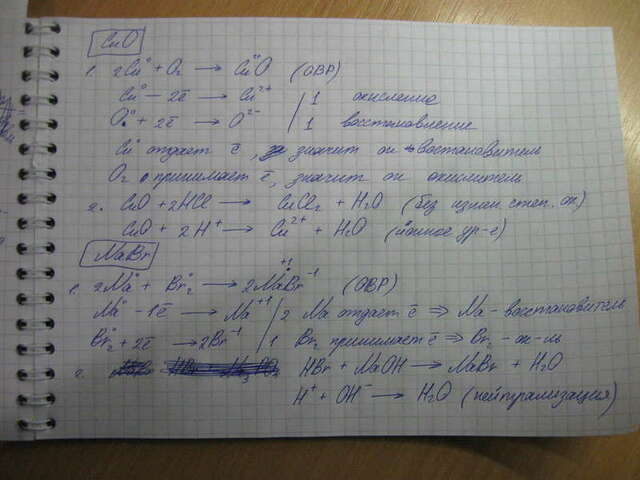 CuO
1. 2Cu⁰ + O₂ → CuO (ОВР)
Cu⁰ - 2ē → Cu²⁺ | 1 окисление
O⁰ + 2ē → O²⁻ | 1 восстановление
Cu отдает ē, значит он восстановитель
O₂ принимает ē, значит он окислитель
2. CuO + 2HCl → CuCl₂ + H₂O (без измен степ. ок)
CuO + 2H⁺ → Cu²⁺ + H₂O (ионное ур-е)
NaBr
1. 2Na⁰ + Br₂⁰ → 2Na⁺¹Br⁻¹ (ОВР)
Na⁰ - 1ē → Na⁺¹ | 2 Na отдает ē ⇒ Na - восстановитель
Br₂⁰ + 2ē → 2Br⁻¹ | 1 Br₂ принимает ē ⇒ Br₂ - ок-ль
2. HBr + NaOH → NaBr + H₂O
H⁺ + OH⁻ → H₂O (нейтрализация)